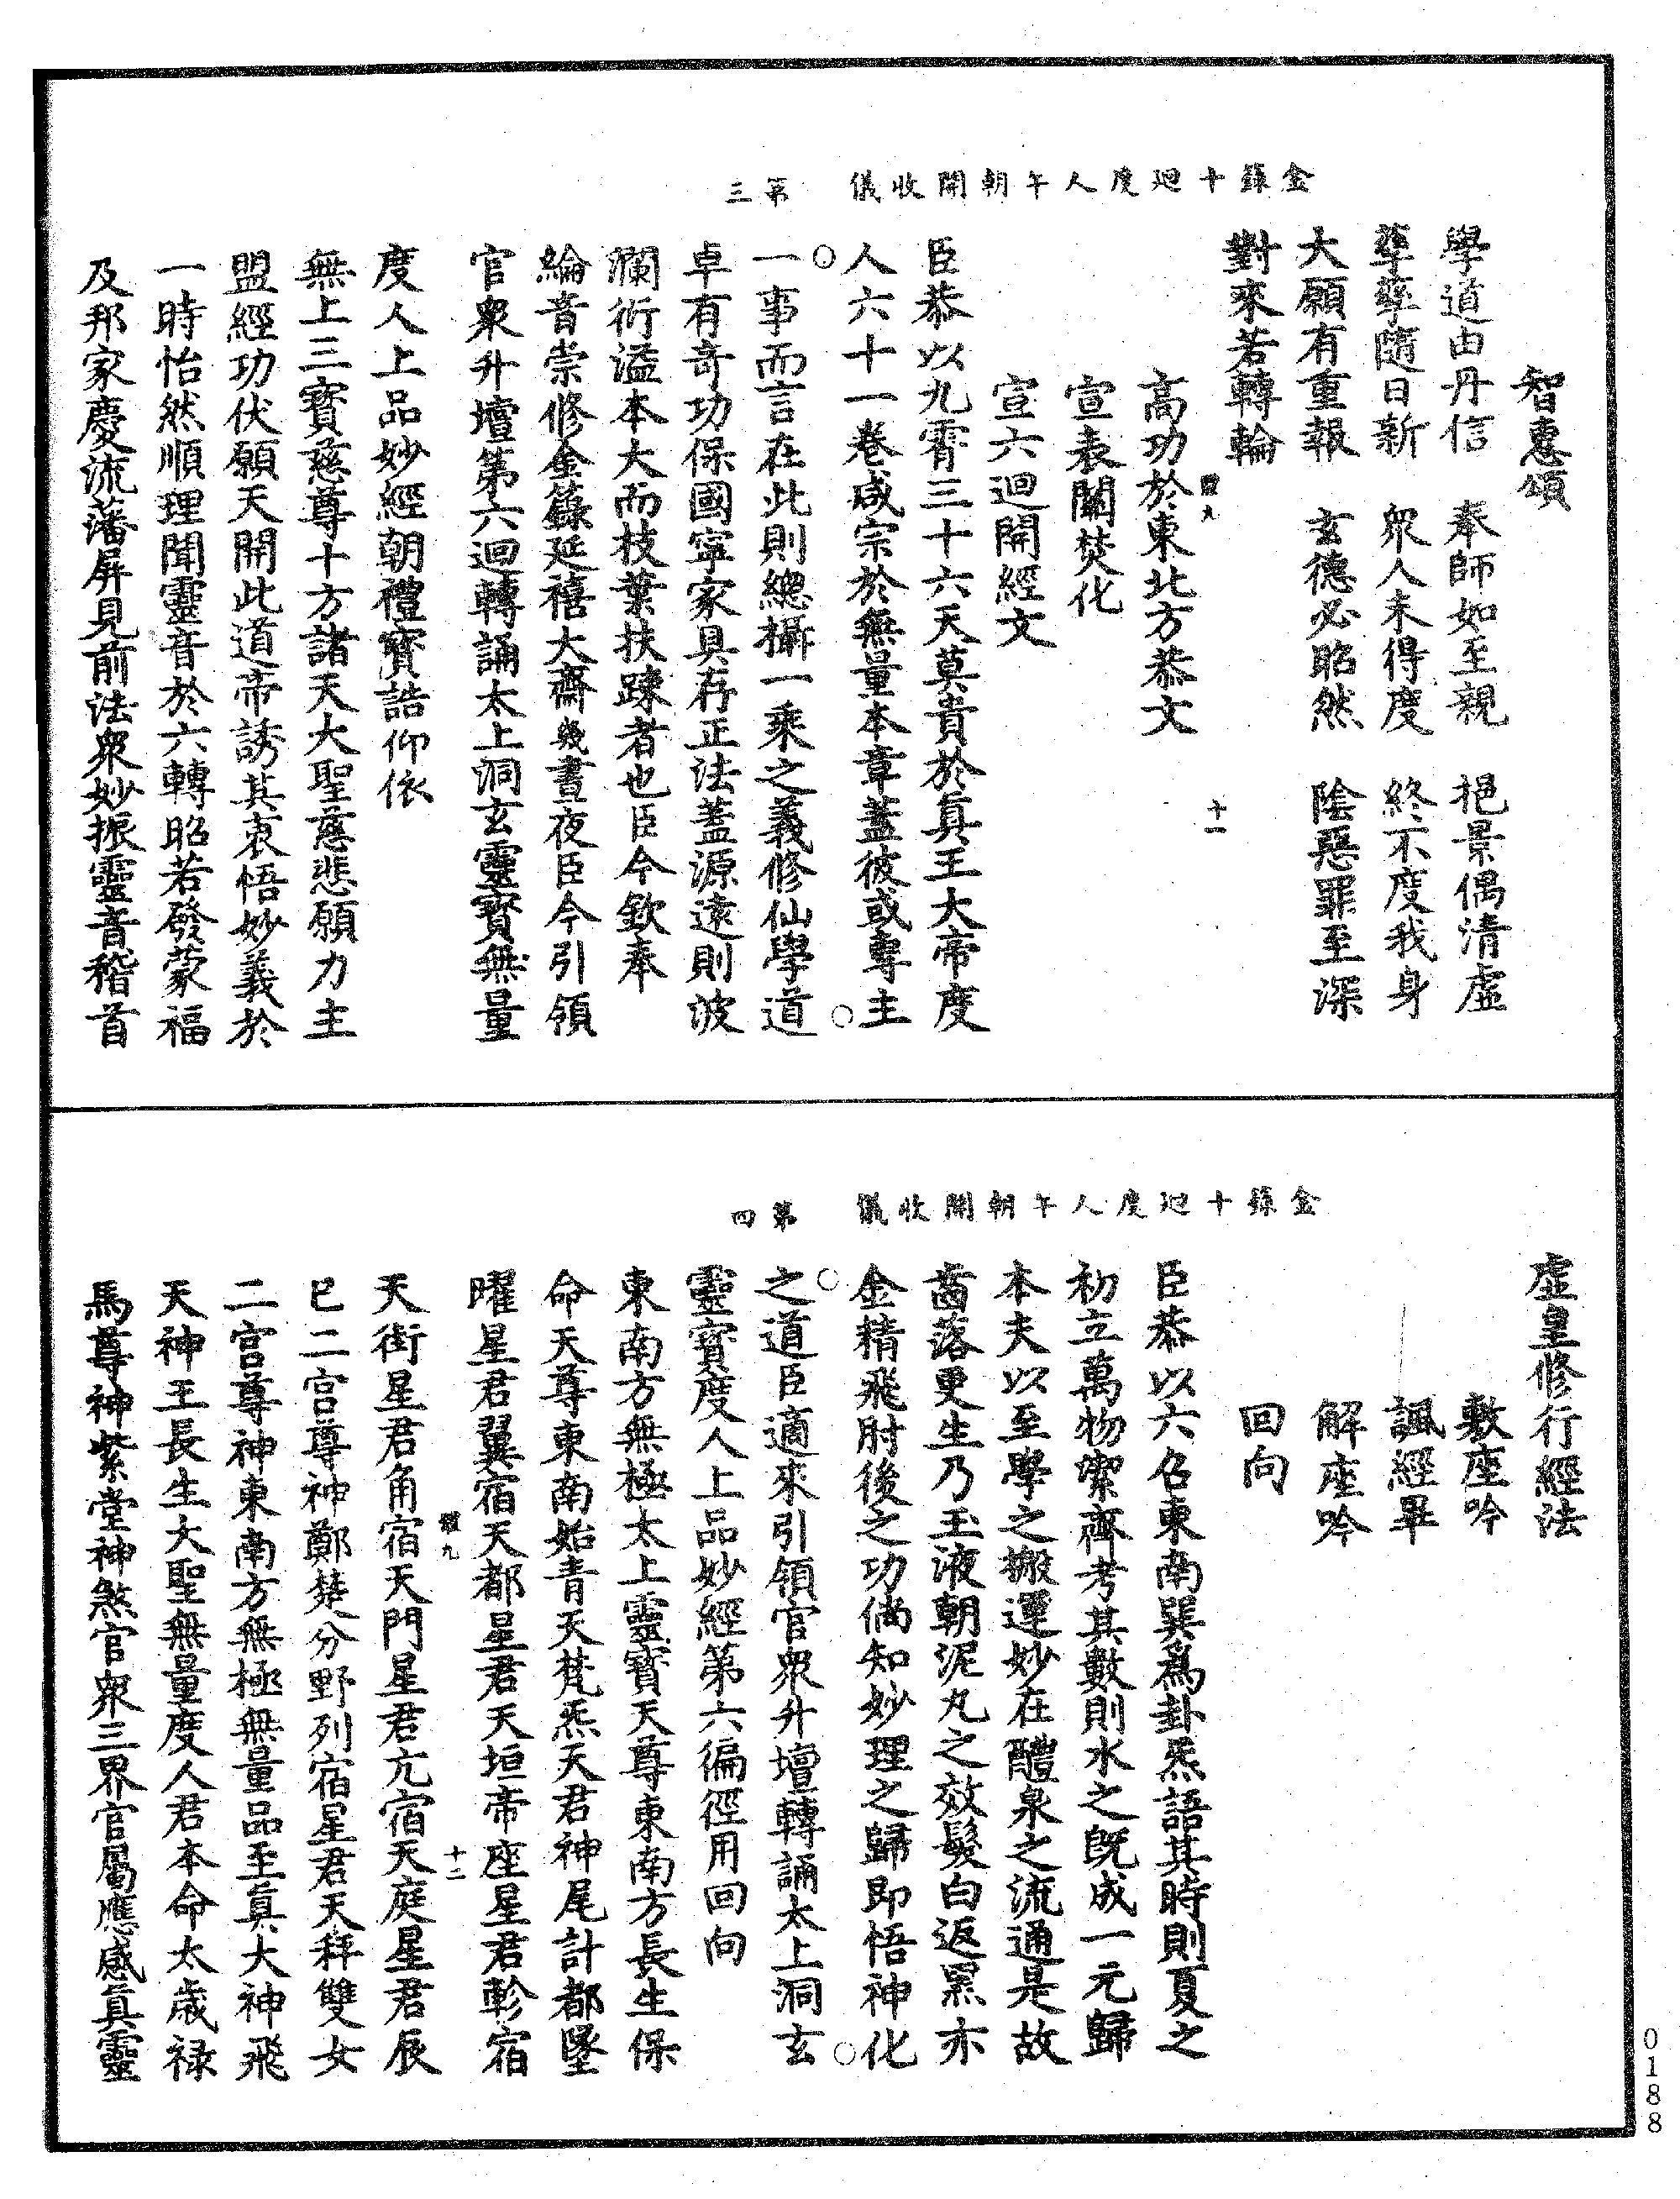 金籙十廻度人午朝開收儀　第三
智惠頌
學道由丹信　奉師如至親　挹景偶清虛
孳孳隨日新　眾人未得度　終不度我身
大願有重報　玄德必昭然　陰惡罪至深
對來若轉輪
高功於東北方恭文
宣表關焚化
宣六迴開經文
臣恭以九霄三十六天莫貴於真王大帝度
人六十一卷咸宗於無量本章蓋彼或專主
一事而言在此則總攝一乘之義修仙學道
卓有奇功保國寧家具存正法蓋源遠則波
瀾衍溢本大而枝葉扶踈者也臣今欽奉
綸音崇修金籙延禧大齋幾晝夜臣今引領
官眾升壇第六迴轉誦太上洞玄靈寶無量
度人上品妙經朝禮寶誥仰依
無上三寶慈尊十方諸天大聖慈悲願力主
盟經功伏願天開此道帝誘其衷悟妙義於
一時怡然順理聞靈音於六轉昭若發蒙福
及邦家慶流藩屏見前法眾妙振靈音稽首
十一
金籙十廻度人午朝開收儀　第四
虛皇修行經法
敷座吟
諷經畢
解座吟
回向
臣恭以六名東南巽為卦炁語其時則夏之
初立萬物絜齊考其數則水之既成一元歸
本夫以至學之搬運妙在醴泉之流通是故
齒落更生乃玉液朝泥丸之效髮白返黑亦
金精飛肘後之功倘知妙理之歸即悟神化
之道臣適來引領官眾升壇轉誦太上洞玄
靈寶度人上品妙經第六徧徑用回向
東南方無極太上靈寶天尊東南方長生保
命天尊東南始青天梵炁天君神尾計都墜
曜星君翼宿天都星君天垣帝座星君軫宿
天街星君角宿天門星君亢宿天庭星君辰
巳二宮尊神鄭楚分野列宿星君天秤雙女
二宮尊神東南方無極無量品至真大神飛
天神王長生大聖無量度人君本命太歲祿
馬尊神紫堂神煞官眾三界官屬應感真靈
十二
0188